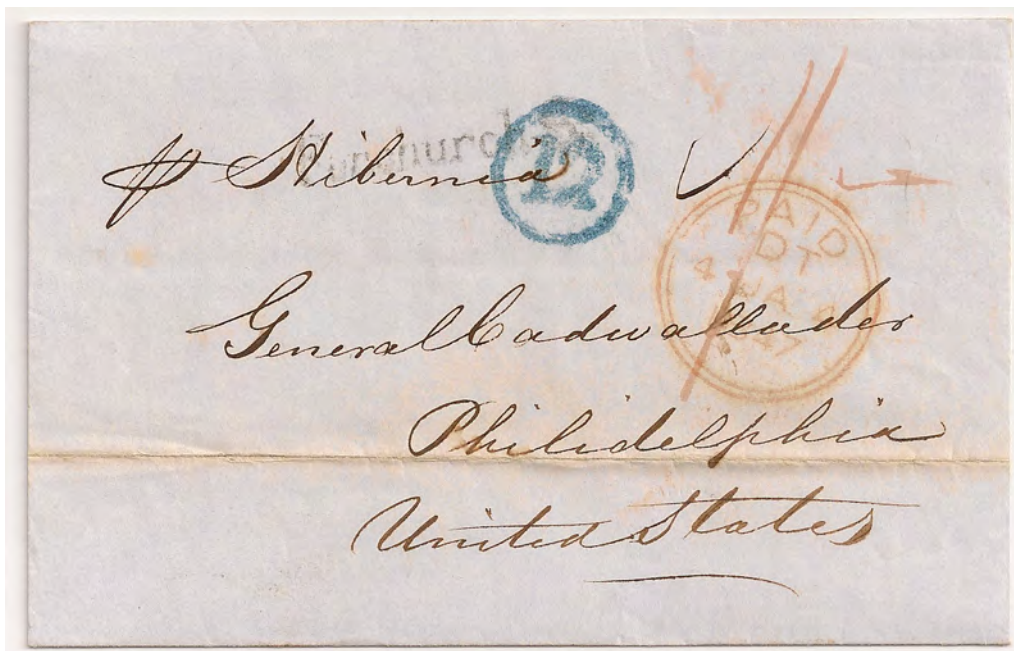 p Hibernia
12
PAID
DT
4 JA 4
47
General Cadwallader
Philidelphia
United States